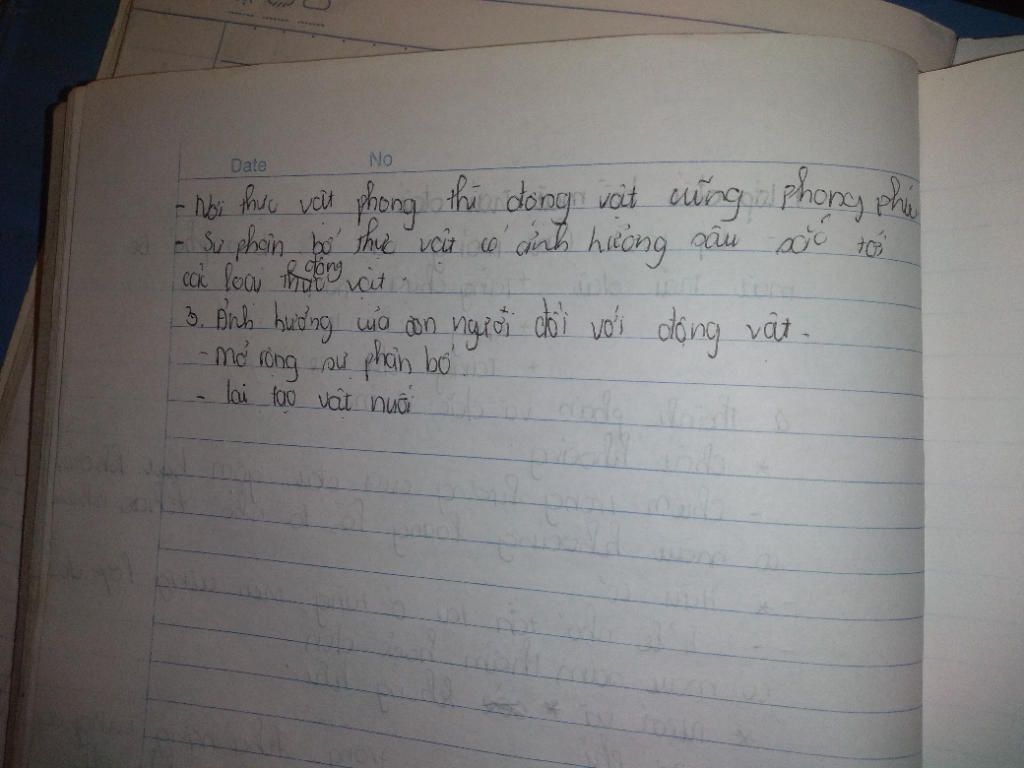 Date No
- Nơi thực vật phong thú động vật cũng phong phú
- Sự phân bố thực vật có ảnh hưởng sâu sắc tới
các loài động vật
3. Ảnh hưởng của con người đối với động vật.
- mở rộng sự phân bố
- lai tạo vật nuôi